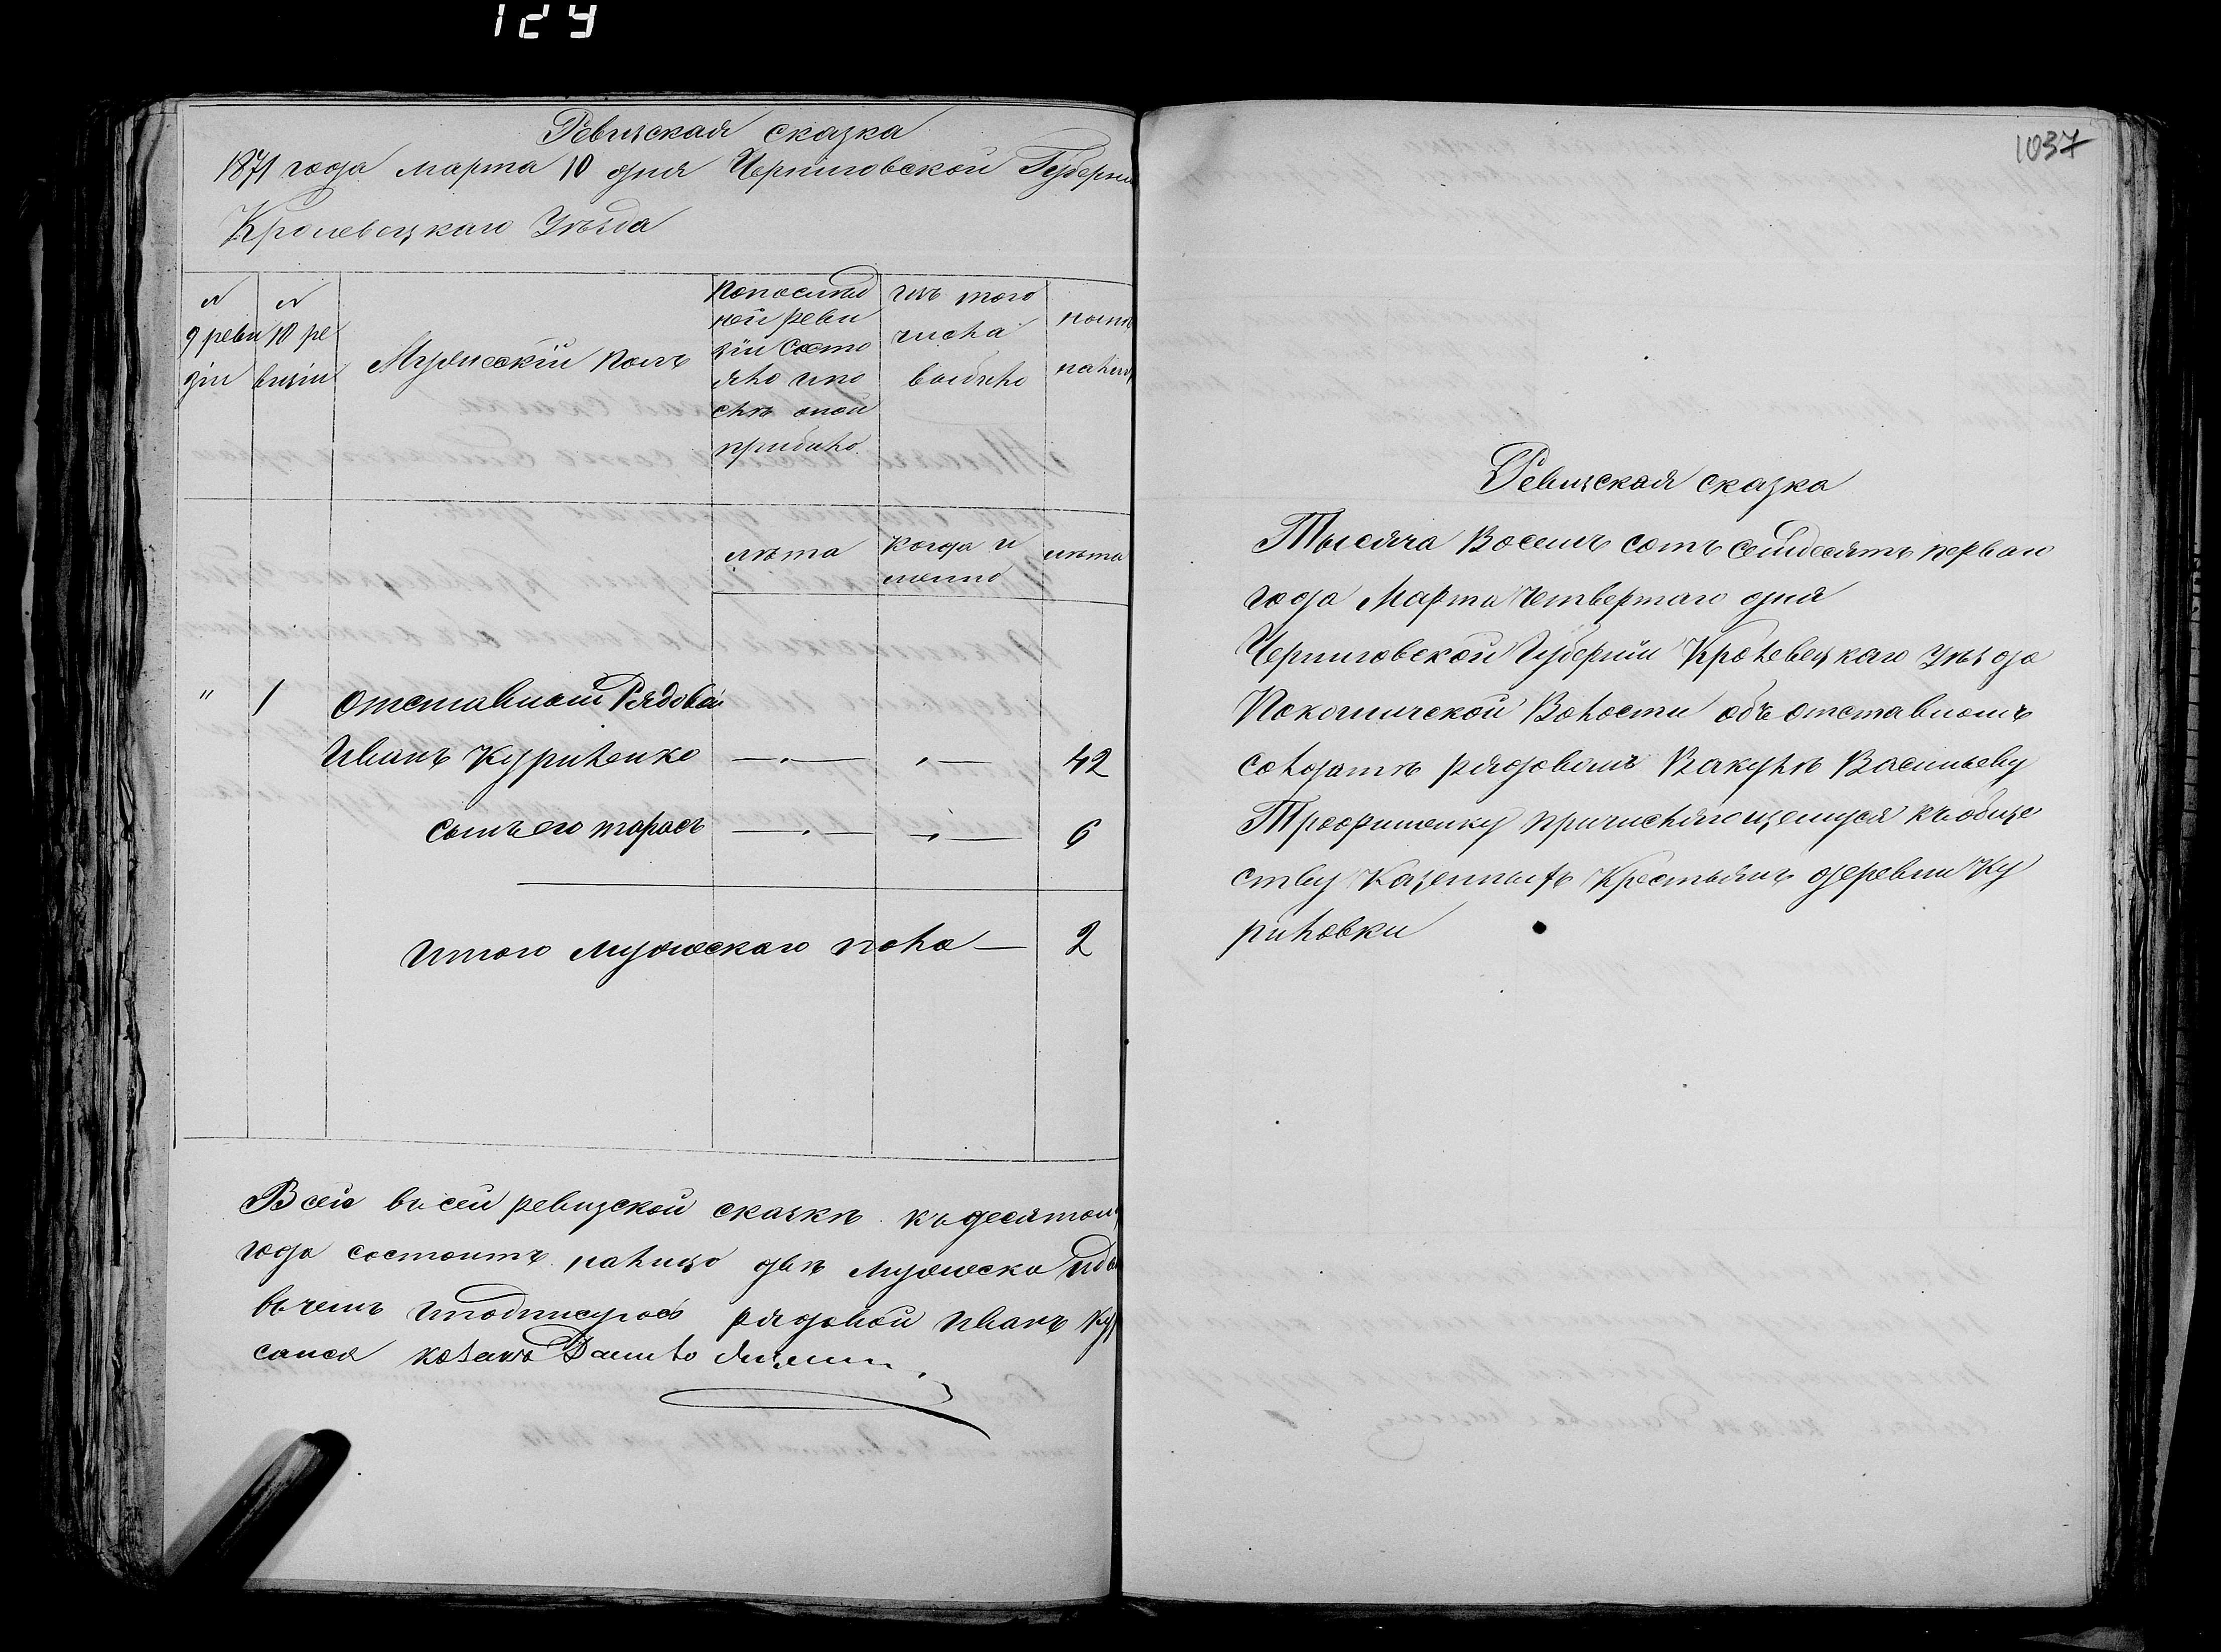 129
Ревизская сказка
1871 года марта 10 дня Черниговской Губерни
Кролевецкаго Уѣзда
№ 9 ревизіи
№ 10 ревизіи
Мужескій полъ
По послѣд
ней реви
зіи состо
яло и по
слѣ оной
прибыло
изъ того
числа
выбыло
нынѣ
налицо
лѣта
когда и
менно
лѣта
" 1 Отставной Рядовой
Иванъ Куриленко — " — " — 42
Сынъ его Тарасъ — " — " — 6
Итого мужескаго пола — 2
Всего въ сей ревизской сказкѣ къ десятому
года состоитъ на лицо двѣ мужеска
въ чемъ и подписуюсь рядовой Иванъ Ку
Козакъ Данило
1037
Ревизская сказка
Тысяча Восемъ сотъ семдесятъ перваго
года Марта Четвертаго дня
Черниговской Губерніи Кролевецкаго уѣзда
Покошичской Волости объ отставномъ
солдатѣ рядовомъ Вакулѣ Васильеву
Трофименку причисляющемуся къ обще
ству Казенныхъ Крестьянъ деревни Ку
риловки